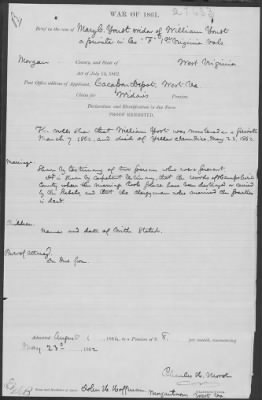 WAR OF 1861.
Brief in the case of Mary C. Yost widow of William Yost
a private in Co "F" 1st Virginia Vols
Morgan County, and State of West Virginia
Act of July 14, 1862.
Post Office address of Applicant, Cacapon Depot, West Va.
Claim for Widow's Pension.
Declaration and Identification in due Form.
PROOF EXHIBITED.
The rolls show that William Yost was mustered a private
March 7, 1862 and died of May 23, 1862.
Marriage.
Shown by testimony of two persons who were present.
It is shown by competent testimony, that the records of Hampshire
County where the marriage took place have been destroyed or carried
by the Rebels, and that the clergyman who married the parties
is dead.
Children.
Names and date of Birth Stated.
Power of attorney
In due form
Admitted August 6, 1864, to a Pension of $ 8. per month, commencing
May 23d 1862
Charles H.
John H. Hoffman